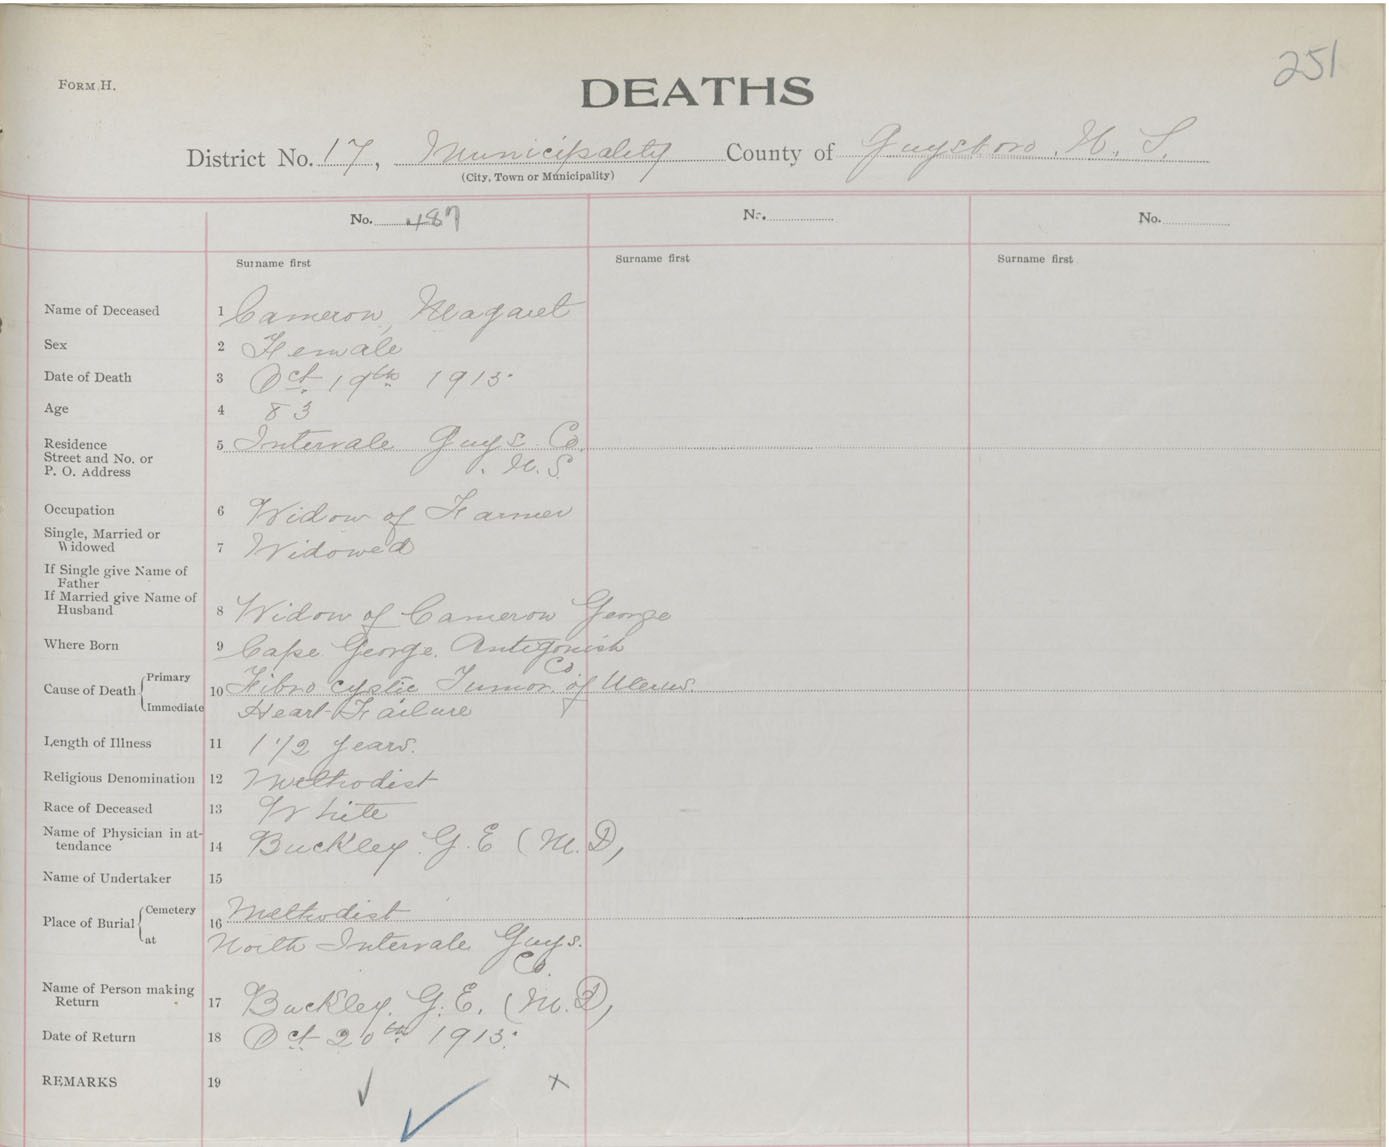 251
FORM H.
DEATHS
District No. 17, Municipality County of Guysboro, N. S.
(City, Town or Municipality)
No. 487 No. No.
Surname first Surname first Surname first
Name of Deceased 1 Cameron, Magaret
Sex 2 Female
Date of Death 3 Oct. 19th 1913.
Age 4 83
Residence 5 Intervale Guys. Co.
Street and No. or
P. O. Address N. S.
Occupation 6 Widow of Farmer
Single, Married or
Widowed 7 Widowed
If Single give Name of
Father
If Married give Name of
Husband 8 Widow of Cameron George
Where Born 9 Cape George. Antigonish
Co.
Cause of Death Primary 10 Fibro cystic Tumor of Uterus.
Immediate Heart-Failure
Length of Illness 11 1 1/2 years.
Religious Denomination 12 Methodist
Race of Deceased 13 White
Name of Physician in at-
tendance 14 Buckley. G. E (M. D,
Name of Undertaker 15
Place of Burial Cemetery 16 Methodist
at North Intervale Guys.
Co.
Name of Person making
Return 17 Buckley. G. E. (M. D,
Date of Return 18 Oct 20th 1913.
REMARKS 19